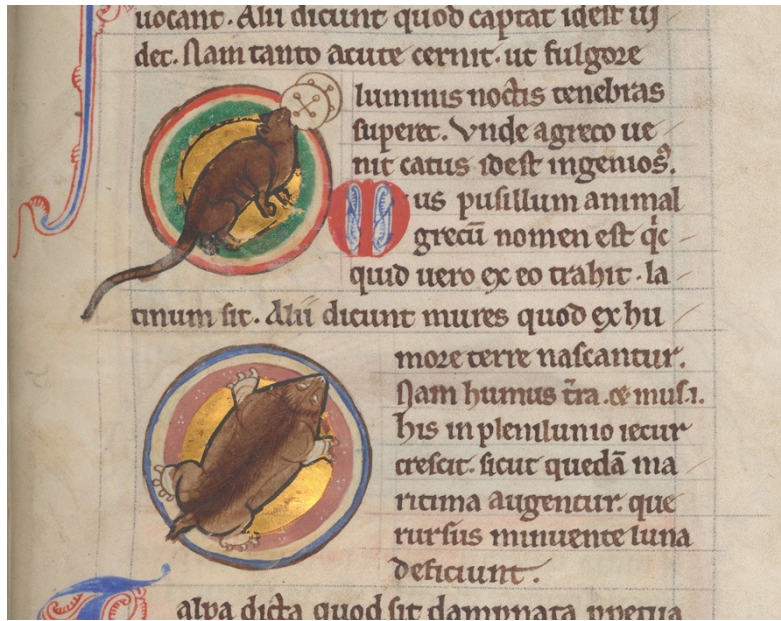 uocant. Alii dicunt quod captat idest ui
det. Nam tanto acute cernit. ut fulgore
luminis noctis tenebras
superet. Vnde agreco ue
nit catus idest ingenios᾽.
Mus pusillum animal
grecū nomen est qͥc
quid uero ex eo trahit. la
tinum sit. Alii dicunt mures quod ex hu
more terre nascantur.
Nam humus t̄ra. ce mus.i.
his in plenilunio iecur
crescit. sicut quedā ma
ritima augentur. que
rursus minuente luna
deficiunt.
Talpa dicta quod sit dampnata ppetua